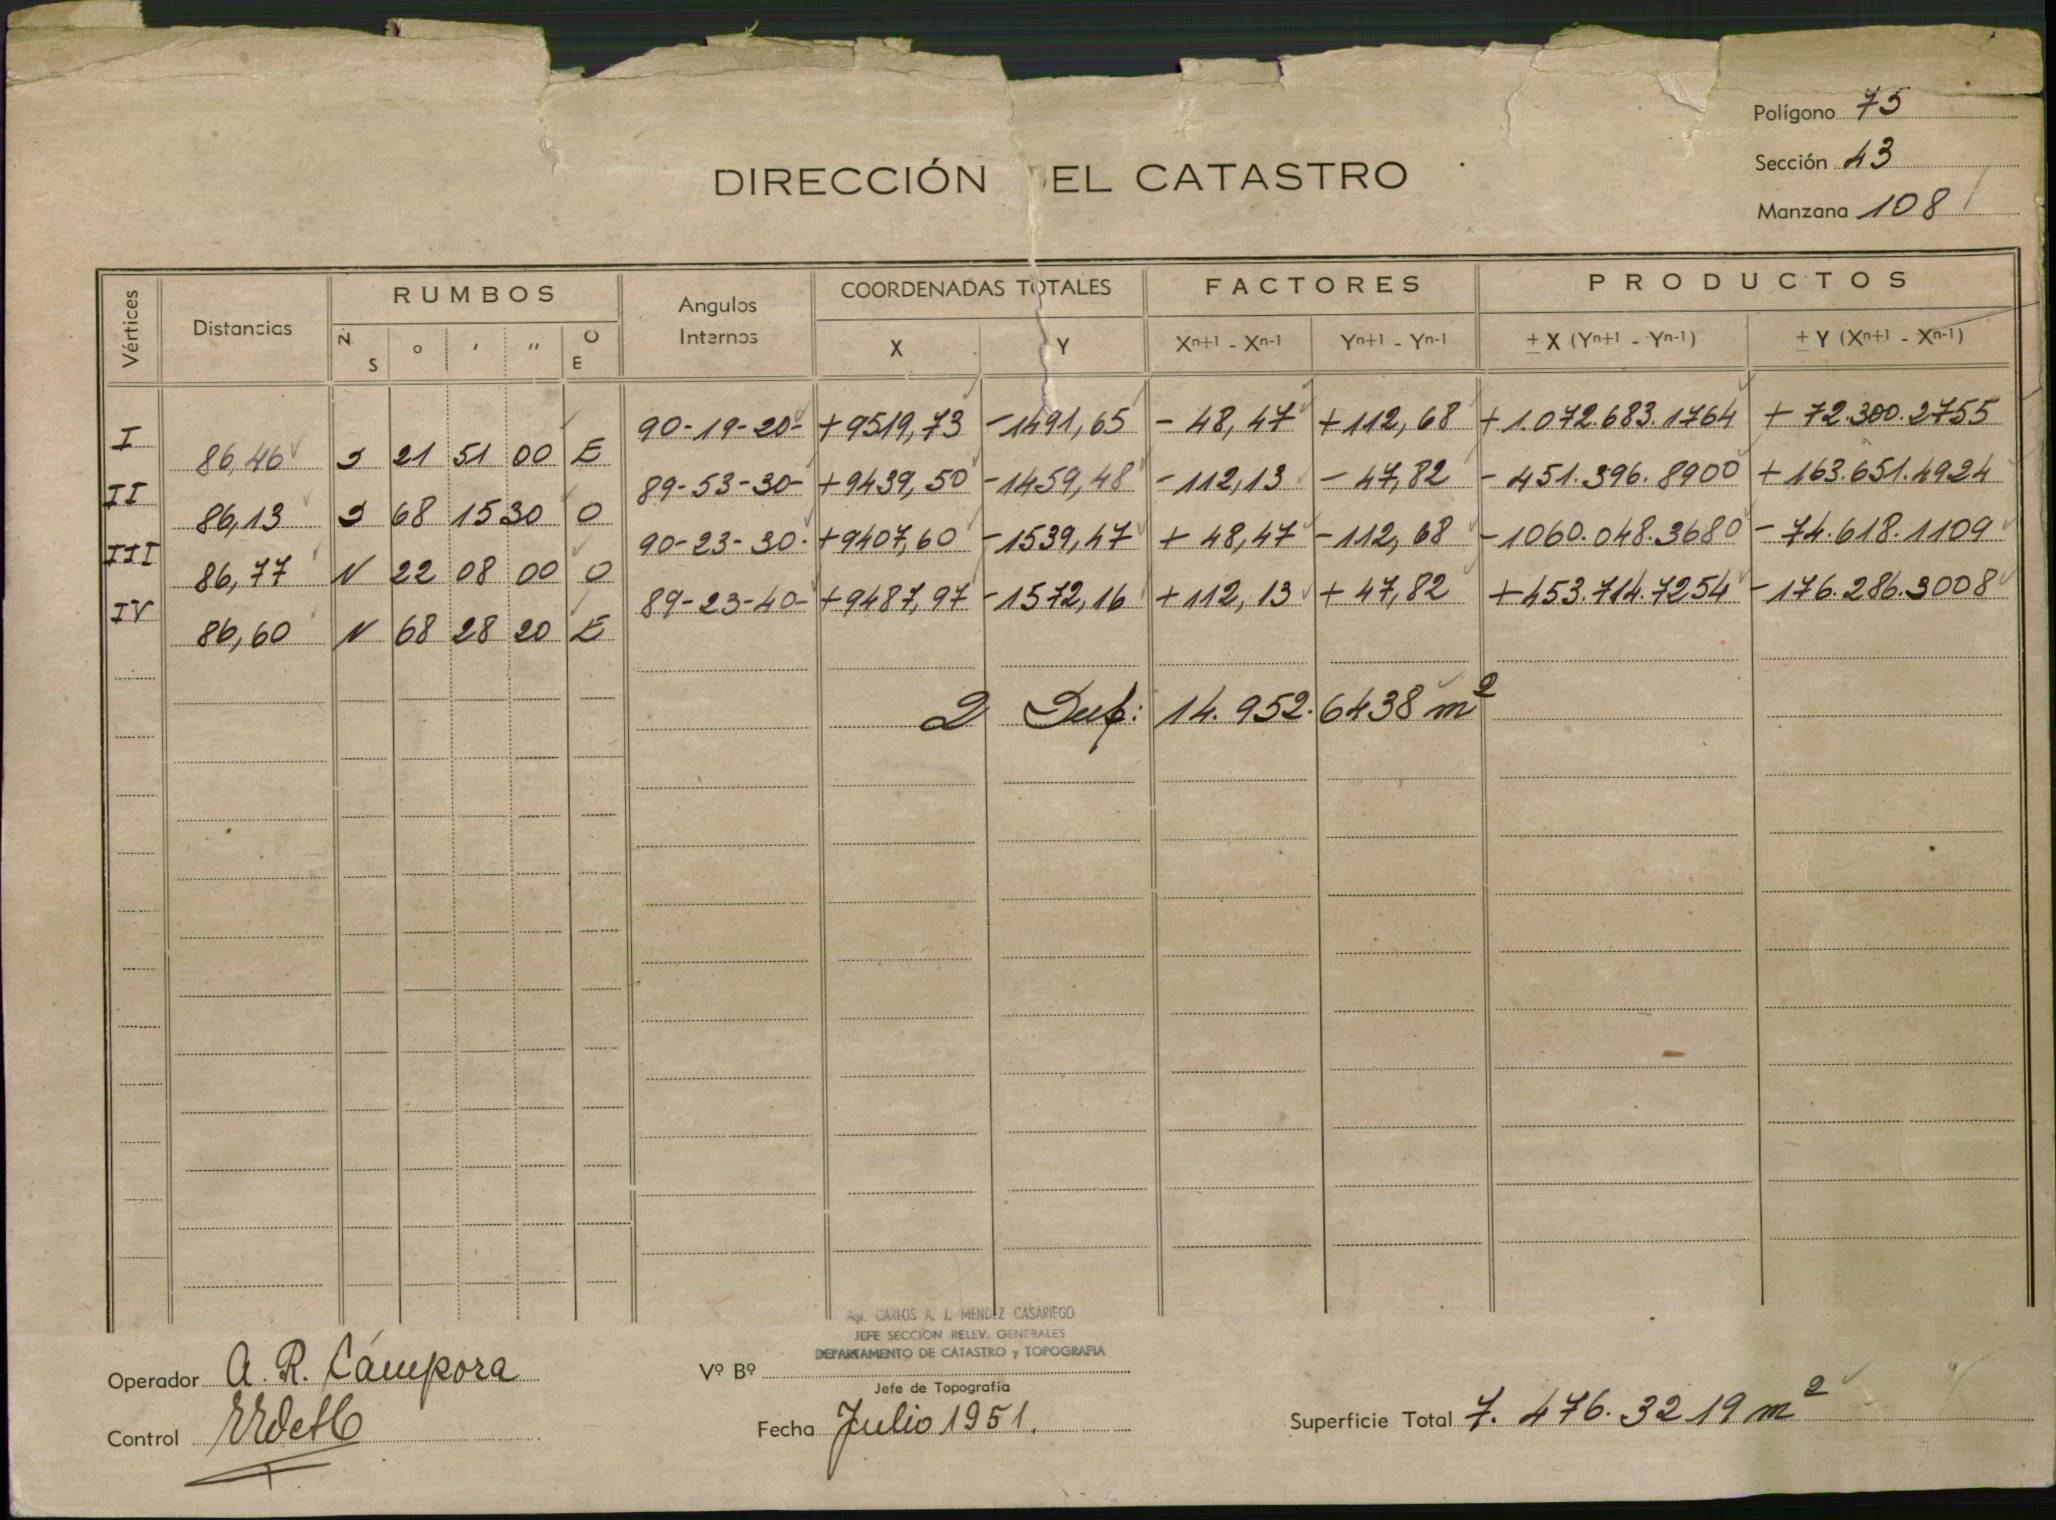 Polígono 75
Sección 43
Manzana 108
DIRECCIÓN DEL CATASTRO
Vértices Distancias RUMBOS Angulos Internos COORDENADAS TOTALES FACTORES PRODUCTOS
N S ° ' " O E X Y Xn+1 - Xn-1 Yn+1 - Yn-1 ± X (Yn+1 - Yn-1) ± Y (Xn+1 - Xn-1)
I 90-19-20- +9519,73 -1491,65 - 48,47 +112,68 +1.072.683.1764 + 72.300.2755
86,46 S 21 51 00 E
II 89-53-30- +9439,50 -1459,48 -112,13 - 47,82 - 451.396.8900 +163.651.4924
86,13 S 68 15 30 O
III 90-23-30- +9407,60 -1539,47 + 48,47 -112,68 -1060.048.3680 - 74.618.1109
86,77 N 22 08 00 O
IV 89-23-40- +9487,97 -1572,16 +112,13 + 47,82 +453.714.7254 -176.286.3008
86,60 N 68 28 20 E
2 Sup: 14.952.6438 m²
Agr. CARLOS A. J. MENDEZ CASARIEGO
JEFE SECCION RELEV. GENERALES
DEPARTAMENTO DE CATASTRO y TOPOGRAFIA
Operador A. R. Cámpora
Vº Bº
Jefe de Topografía
Control
Fecha Julio 1951.
Superficie Total 7.476.3219 m²